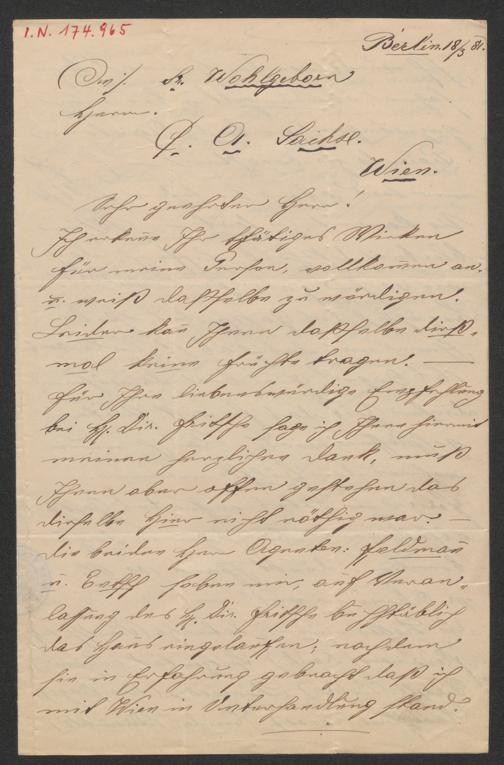 I.N. 174.965
Berlin 18/3 81.
Sr. Wohlgeborn
Herrn.
A. Sachse.
Wien.
Sehr geehrter Herr!
Ich erkenne Ihr thätiges Wirken
für meine Person, vollkommen an.
u. weiß dasselbe zu würdigen.
Leider kan Ihnen dasselbe dieß-
mal keine Früchte tragen. —
Für Ihre liebenswürdige Empfehlung
bei H. Dir. Fritsche sage ich Ihnen hiermit
meinen herzlichen Dank, muß
Ihnen aber offen gestehen das
dieselbe hier nicht nöthig war. —
Die beiden Herrn Agenten: Feldman
u. haben mir, auf Veran-
lassung des H. Dir. Fritsche buchstäblich
das Haus eingelaufen, nachdem
sie in Erfahrung gebracht daß ich
mit Wien in Unterhandlung stand.